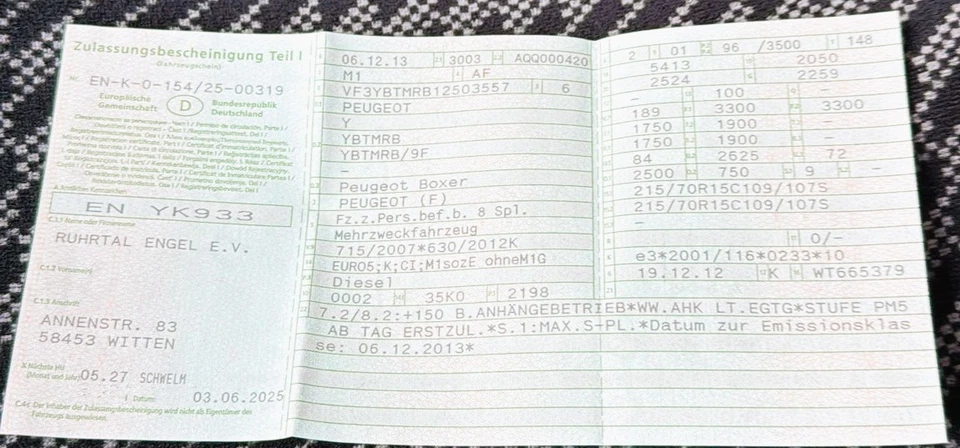 Zulassungsbescheinigung Teil I
(Fahrzeugschein)
Nr. EN-K-0-154/25-00319
Europäische Gemeinschaft
D
Bundesrepublik Deutschland
A Amtliches Kennzeichen
EN YK933
C.1.1 Name oder Firmenname
RUHRTAL ENGEL E.V.
C.1.2 Vorname(n)
C.1.3 Anschrift
ANNENSTR. 83
58453 WITTEN
X Nächste HU
(Monat und Jahr) 05.27 SCHWELM
I Datum: 03.06.2025
C.4c Der Inhaber der Zulassungsbescheinigung wird nicht als Eigentümer des
Fahrzeugs ausgewiesen.
06.12.13 3003 AQQ000420
M1 AF
VF3YBTMRB12503557 6
PEUGEOT
Y
YBTMRB
YBTMRB/9F
–
Peugeot Boxer
PEUGEOT (F)
Fz.z.Pers.bef.b. 8 Spl.
Mehrzweckfahrzeug
715/2007*630/2012K
EURO5;K;CI;M1sozE ohneM1G
Diesel
0002 35K0 2198
2 01 96 /3500 148
5413 2050
2524 2259
– 100 –
189 3300 3300
1750 1900 –
1750 1900 –
84 2625 72
2500 750 9 –
215/70R15C109/107S
215/70R15C109/107S
–
0/–
e3*2001/116*0233*10
19.12.12 K WT665379
7.2/8.2:+150 B.ANHÄNGEBETRIEB*WW.AHK LT.EGTG*STUFE PM5
AB TAG ERSTZUL.*S.1:MAX.S-PL.*Datum zur Emissionsklas
se: 06.12.2013*